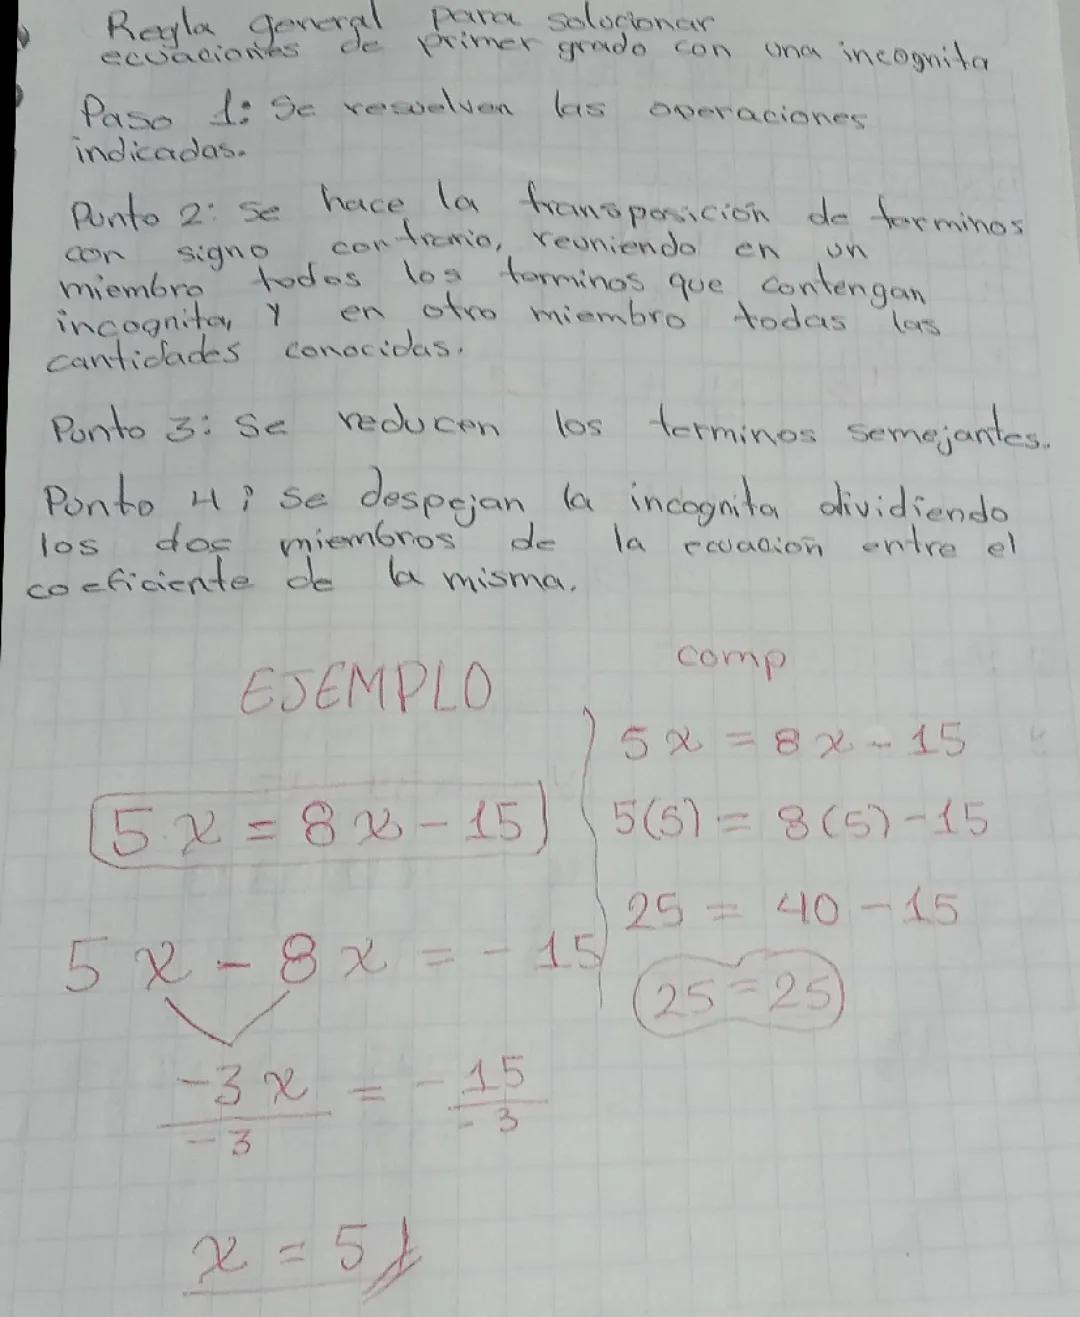 Regla general para solucionar
ecuaciones de primer grado con una incognita
Paso 1: Se resuelven las operaciones
indicadas.
Punto 2: Se hace la transposición de terminos
con signo contrario, reuniendo en un
miembro todos los terminos que contengan
incognita, y en otro miembro todas las
cantidades conocidas.
Punto 3: Se reducen los terminos semejantes.
Punto 4: Se despejan la incognita dividiendo
los dos miembros de la ecuación entre el
coeficiente de la misma.
EJEMPLO
5x = 8x - 15
5x - 8x = - 15
-3x = - 15
-3 -3
x = 5
comp
5x = 8x - 15
5(5) = 8(5) - 15
25 = 40 - 15
25 = 25